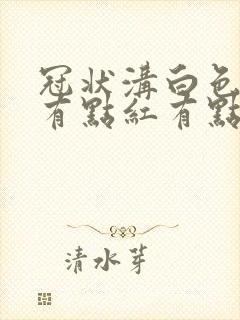 冠狀溝白色
有點紅有點
清水芽